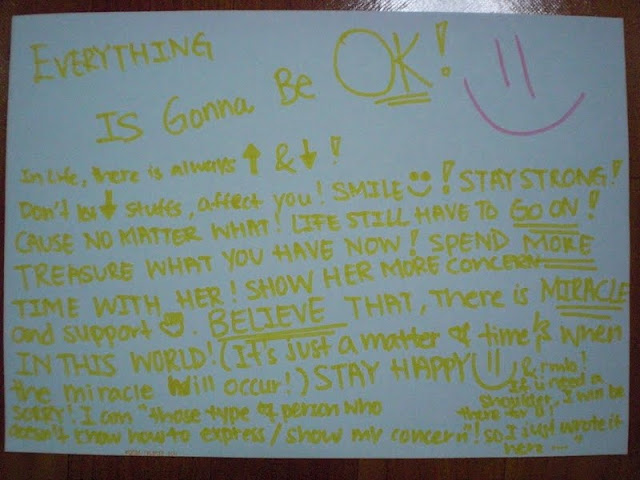 EVERYTHING
IS Gonna Be OK!
In Life, there is always ↑ & ↓ !
Don't let ↓ stuffs, affect you! SMILE ! STAY STRONG!
CAUSE NO MATTER WHAT! LIFE STILL HAVE TO GO ON!
TREASURE WHAT YOU HAVE NOW! SPEND MORE
TIME WITH HER! SHOW HER MORE CONCERN
and support . BELIEVE THAT, There is MIRACLE
IN THIS WORLD! (It's just a matter of time, & when
the miracle will occur!) STAY HAPPY & rmb!
If u need a
shoulder, I will be
there for u!
SORRY! I am "those type of person who
doesn't know how to express/show my concern"! so I just wrote it
here ...."